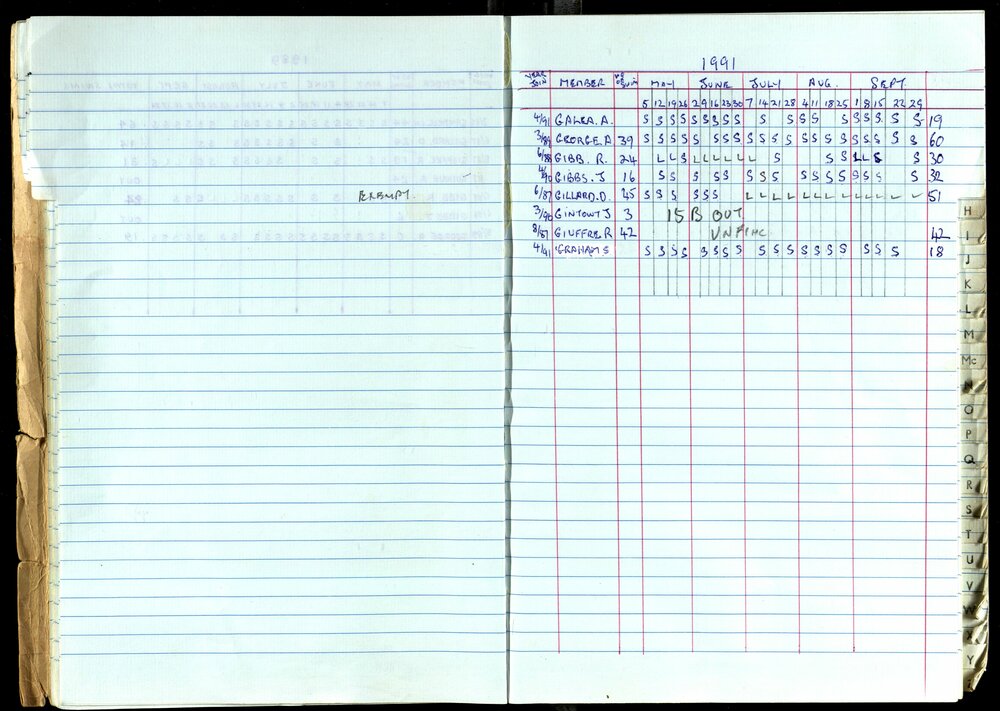 EXEMPT.
1991
YEAR JOIN MEMBER NO OF SWIM MAY JUNE JULY AUG. SEPT.
5 12 19 26 2 9 16 23 30 7 14 21 28 4 11 18 25 1 8 15 22 29
4/91 GALEA. A. S S S S S S S S S S S S S S S S S S S 19
3/89 GEORGE. A 39 S S S S S S S S S S S S S S S S S S S S S 60
6/88 GIBB. R. 24 L L S L L L L L L S S S L L S S 30
GIBBS. J 16 S S S S S S S S S S S S S S S S 32
6/87 GILLARD. D. 45 S S S S S S L L L L L L L L L L L L 51
3/90 GINTOWT J 3 15 B OUT
8/87 GIUFFRE R 42 UNFINC 42
4/91 GRAHAM S S S S S S S S S S S S S S S S S S S 18
H
I
J
K
L
M
Mc
N
O
P
Q
R
S
T
U
V
W
X
Y